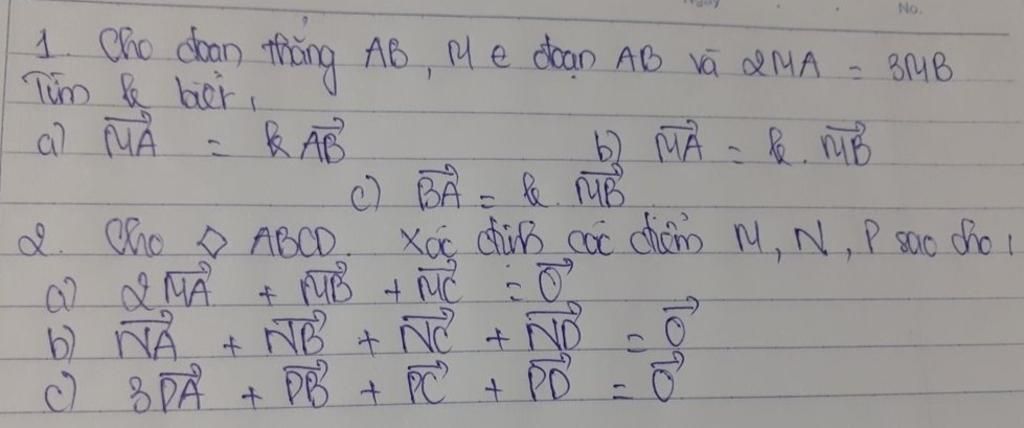 Ngày No.
1. Cho đoạn thẳng AB, M ∈ đoạn AB và 2MA = 3MB
Tìm k biết,
a) $\overrightarrow{MA}$ = k $\overrightarrow{AB}$ b) $\overrightarrow{MA}$ = k. $\overrightarrow{MB}$
c) $\overrightarrow{BA}$ = k. $\overrightarrow{MB}$
2. Cho ◇ ABCD. Xác định các điểm M, N, P sao cho:
a) 2$\overrightarrow{MA}$ + $\overrightarrow{MB}$ + $\overrightarrow{MC}$ = $\overrightarrow{0}$
b) $\overrightarrow{NA}$ + $\overrightarrow{NB}$ + $\overrightarrow{NC}$ + $\overrightarrow{ND}$ = $\overrightarrow{0}$
c) 3$\overrightarrow{PA}$ + $\overrightarrow{PB}$ + $\overrightarrow{PC}$ + $\overrightarrow{PD}$ = $\overrightarrow{0}$